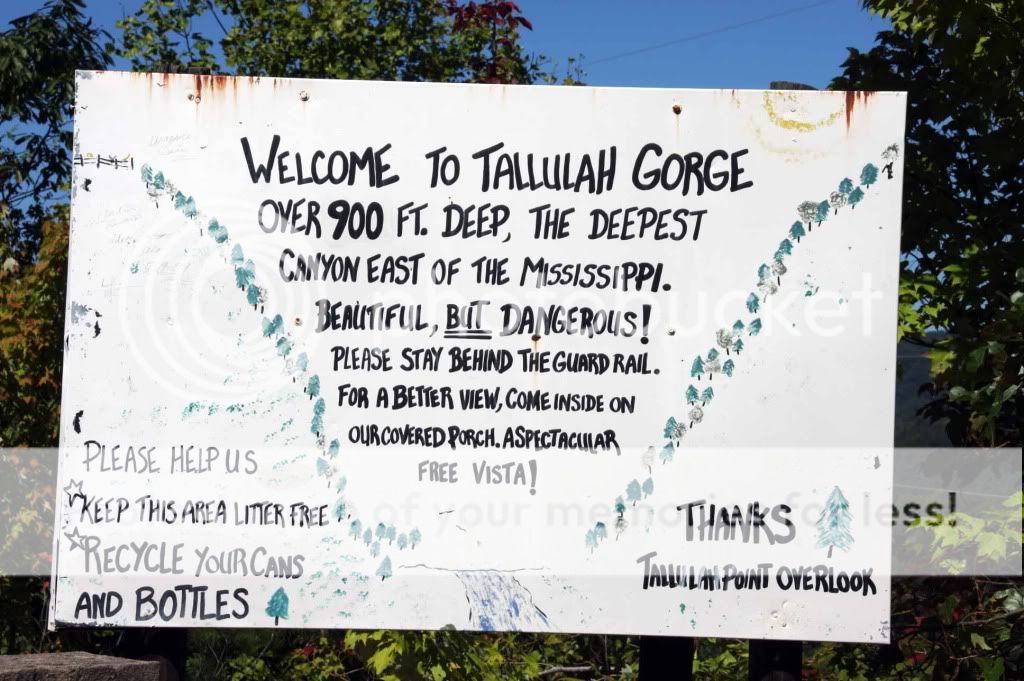 WELCOME TO TALLULAH GORGE
OVER 900 FT. DEEP, THE DEEPEST
CANYON EAST OF THE MISSISSIPPI.
BEAUTIFUL, BUT DANGEROUS!
PLEASE STAY BEHIND THE GUARD RAIL.
FOR A BETTER VIEW, COME INSIDE ON
OUR COVERED PORCH. A SPECTACULAR
FREE VISTA!
PLEASE HELP US
KEEP THIS AREA LITTER FREE
RECYCLE YOUR CANS
AND BOTTLES
THANKS
TALLULAH POINT OVERLOOK
photobucket
of your memories for less!